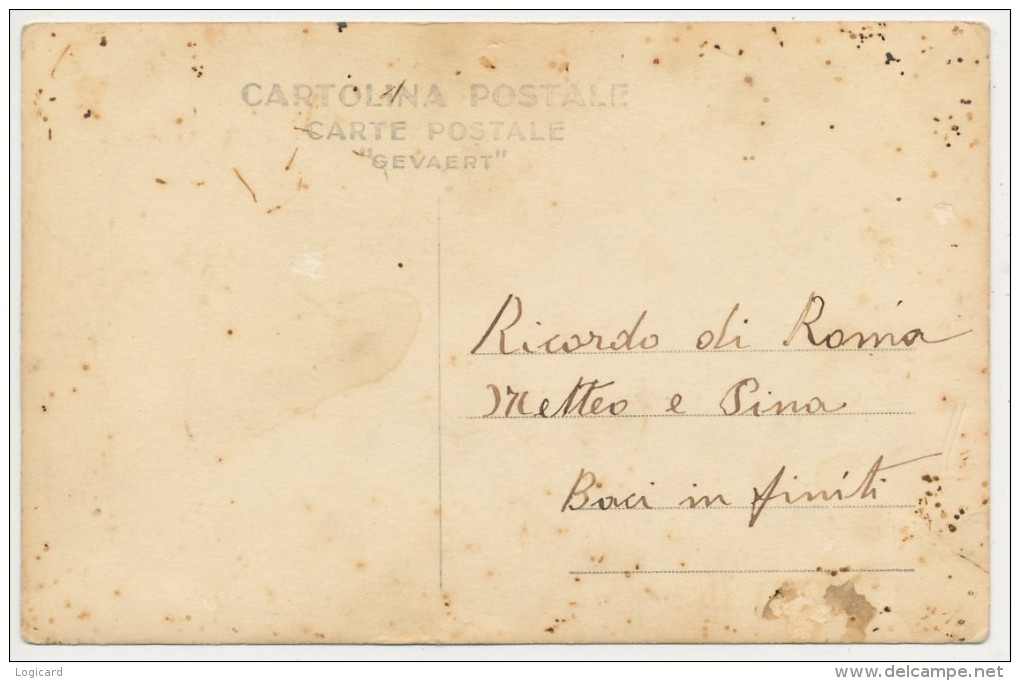 CARTOLINA POSTALE
CARTE POSTALE
"GEVAERT"
Ricordo di Roma
Metteo e Pina
Baci in finiti
Logicard
delcampe.net